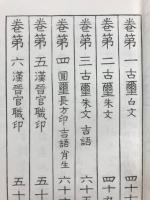 卷第一古璽白文
卷第二古璽朱文
卷第三古璽朱文 吉語
卷第四圓璽長方印吉語肖生
卷第五漢晉官職印
卷第六漢晉官職印